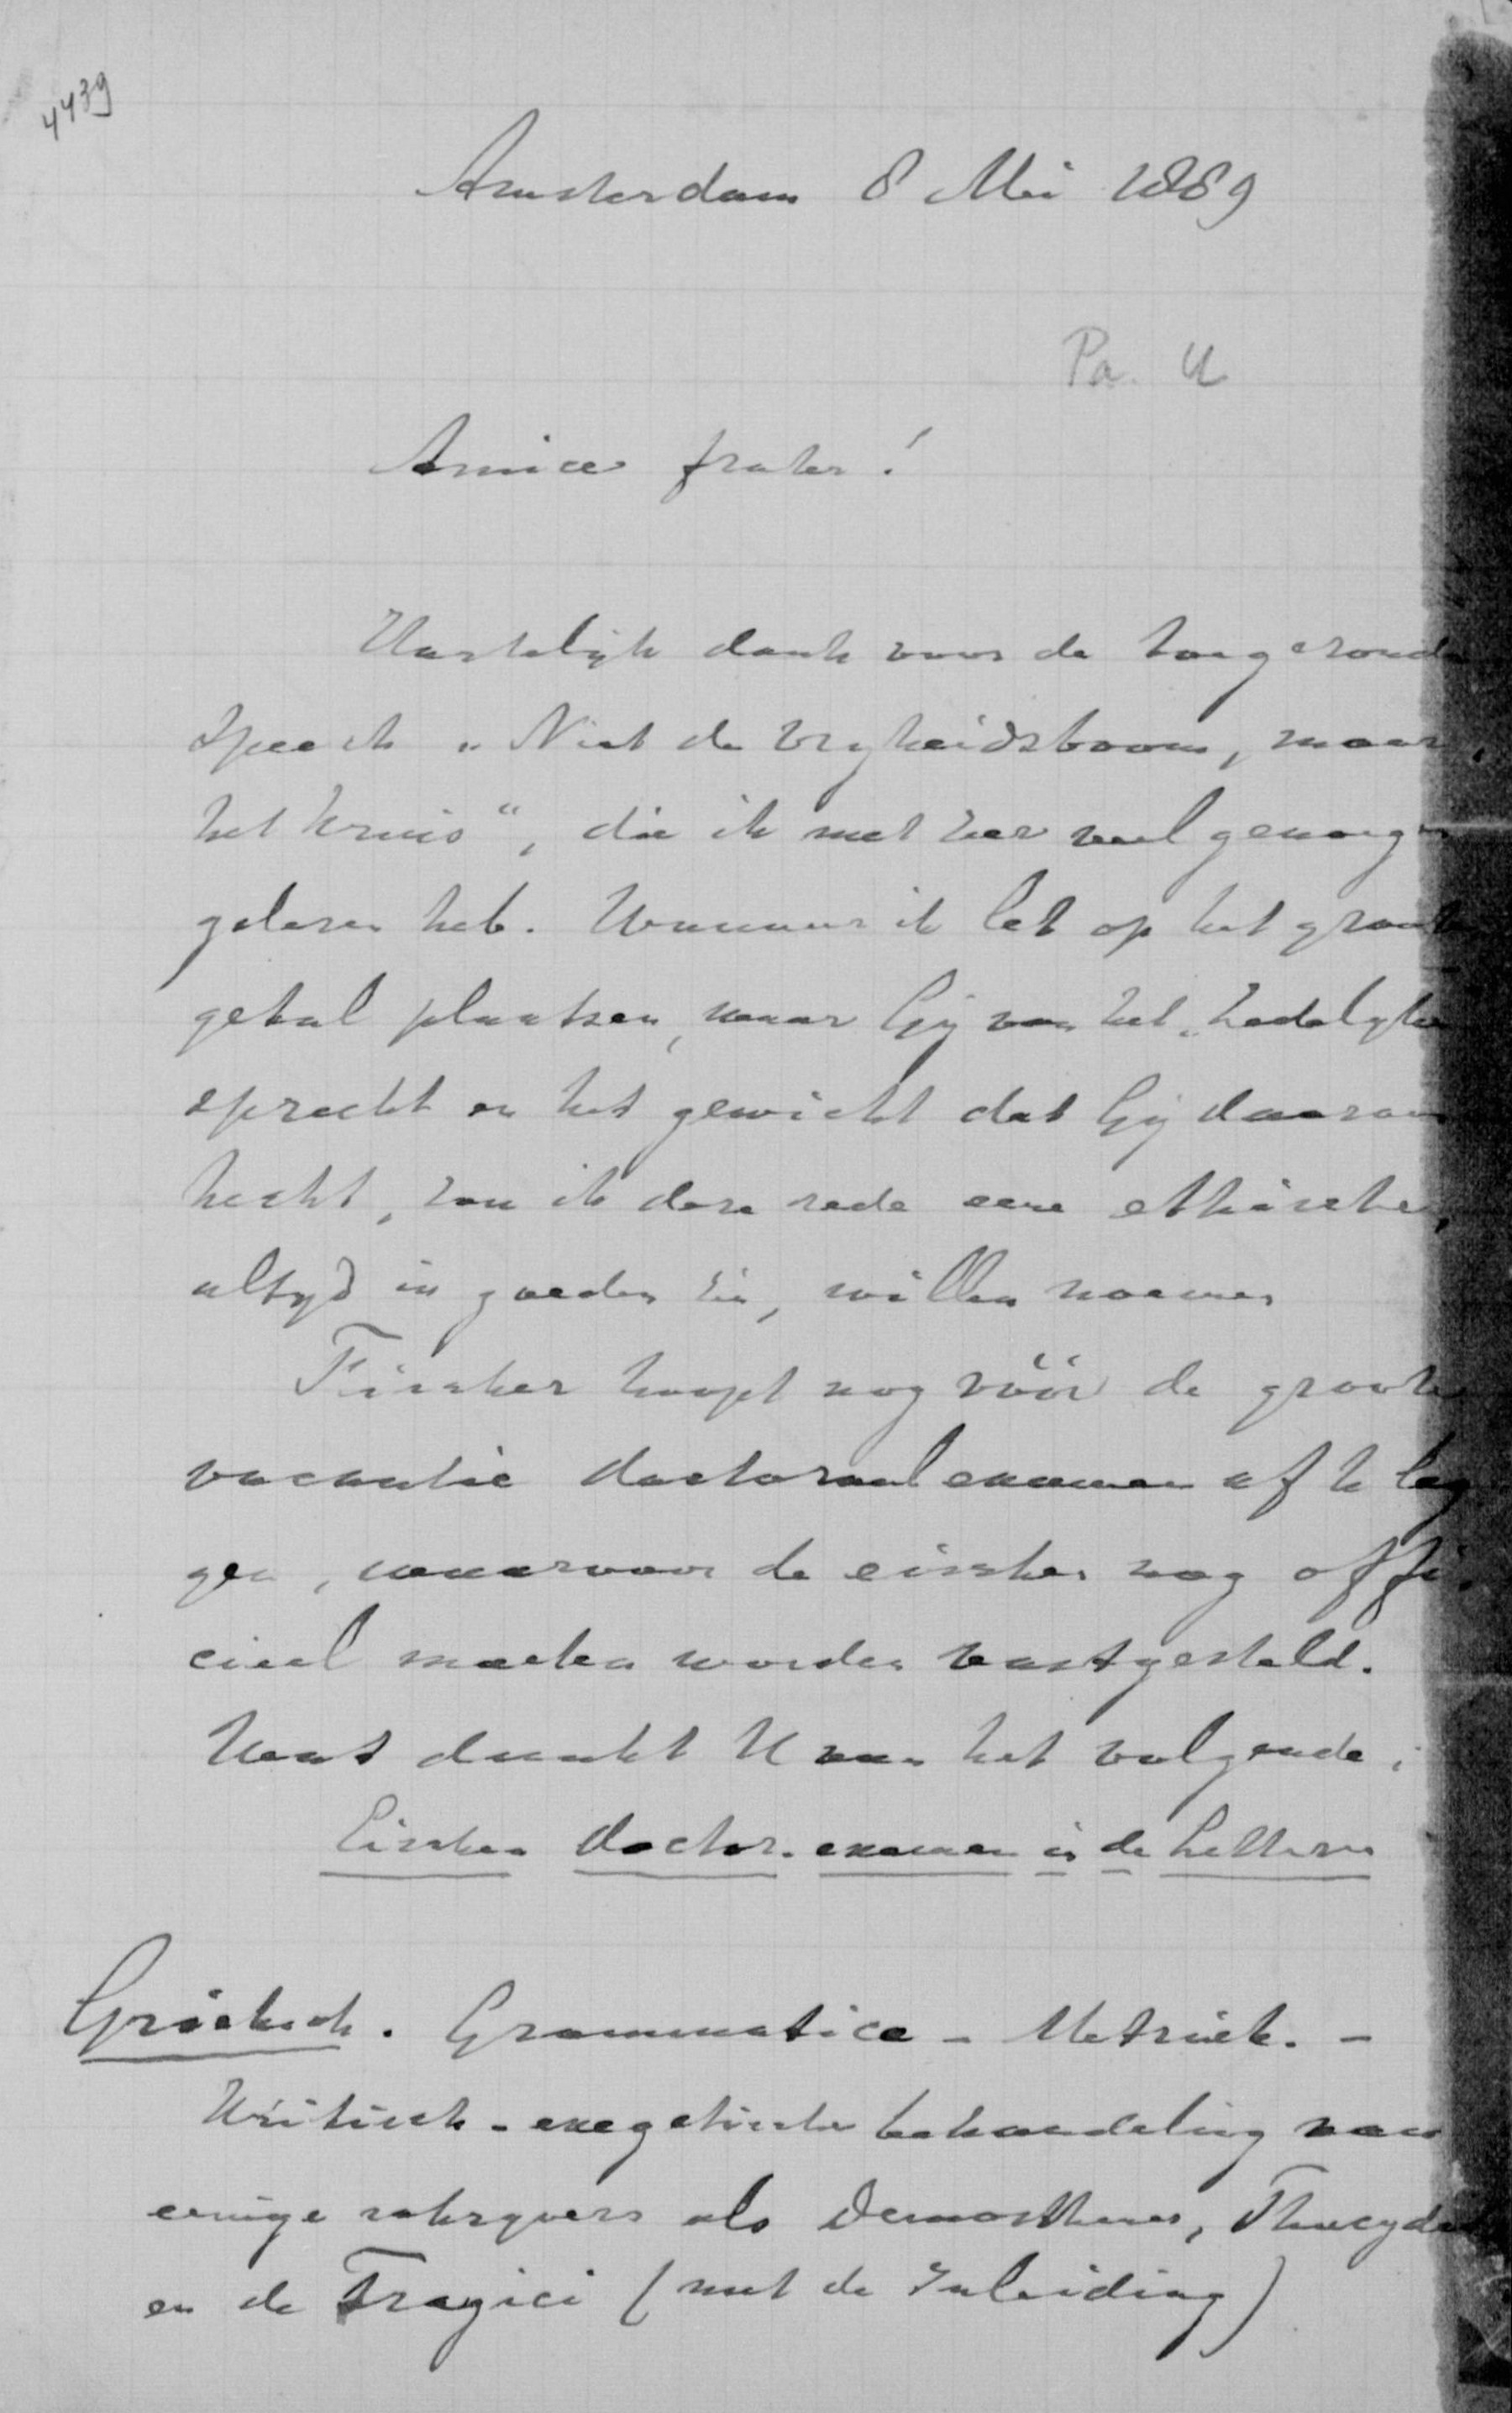 4439
Amsterdam 8 Mei 1889
Pa. U
Amice frater!
Hartelijk dank voor de toegezonden
speech „Niet de Vrijheidsboom, maar
het kruis“, die ik met zeer veel genoegen
gelezen heb. Wanneer ik let op het groote
getal plaatsen, waar Gij van het „zedelijke
spreekt en het gewicht dat Gij daaraan
hecht, zou ik deze rede eene ethische,
altijd in goeden zin, willen noemen
Fischer hoopt nog vóór de groote
vacantie doctoraal examen af te leg
gen, waarvoor de eischen nog offi-
cieel moeten worden vastgesteld.
Wat dunkt U van het volgende:
Eischen doctor. examen in de Letteren
Grieksch. Grammatica - Metriek. -
Kritisch-exegetische behandeling van
eenige schrijvers als Demosthenes, Thucydides
en de Tragici (met de Inleiding)